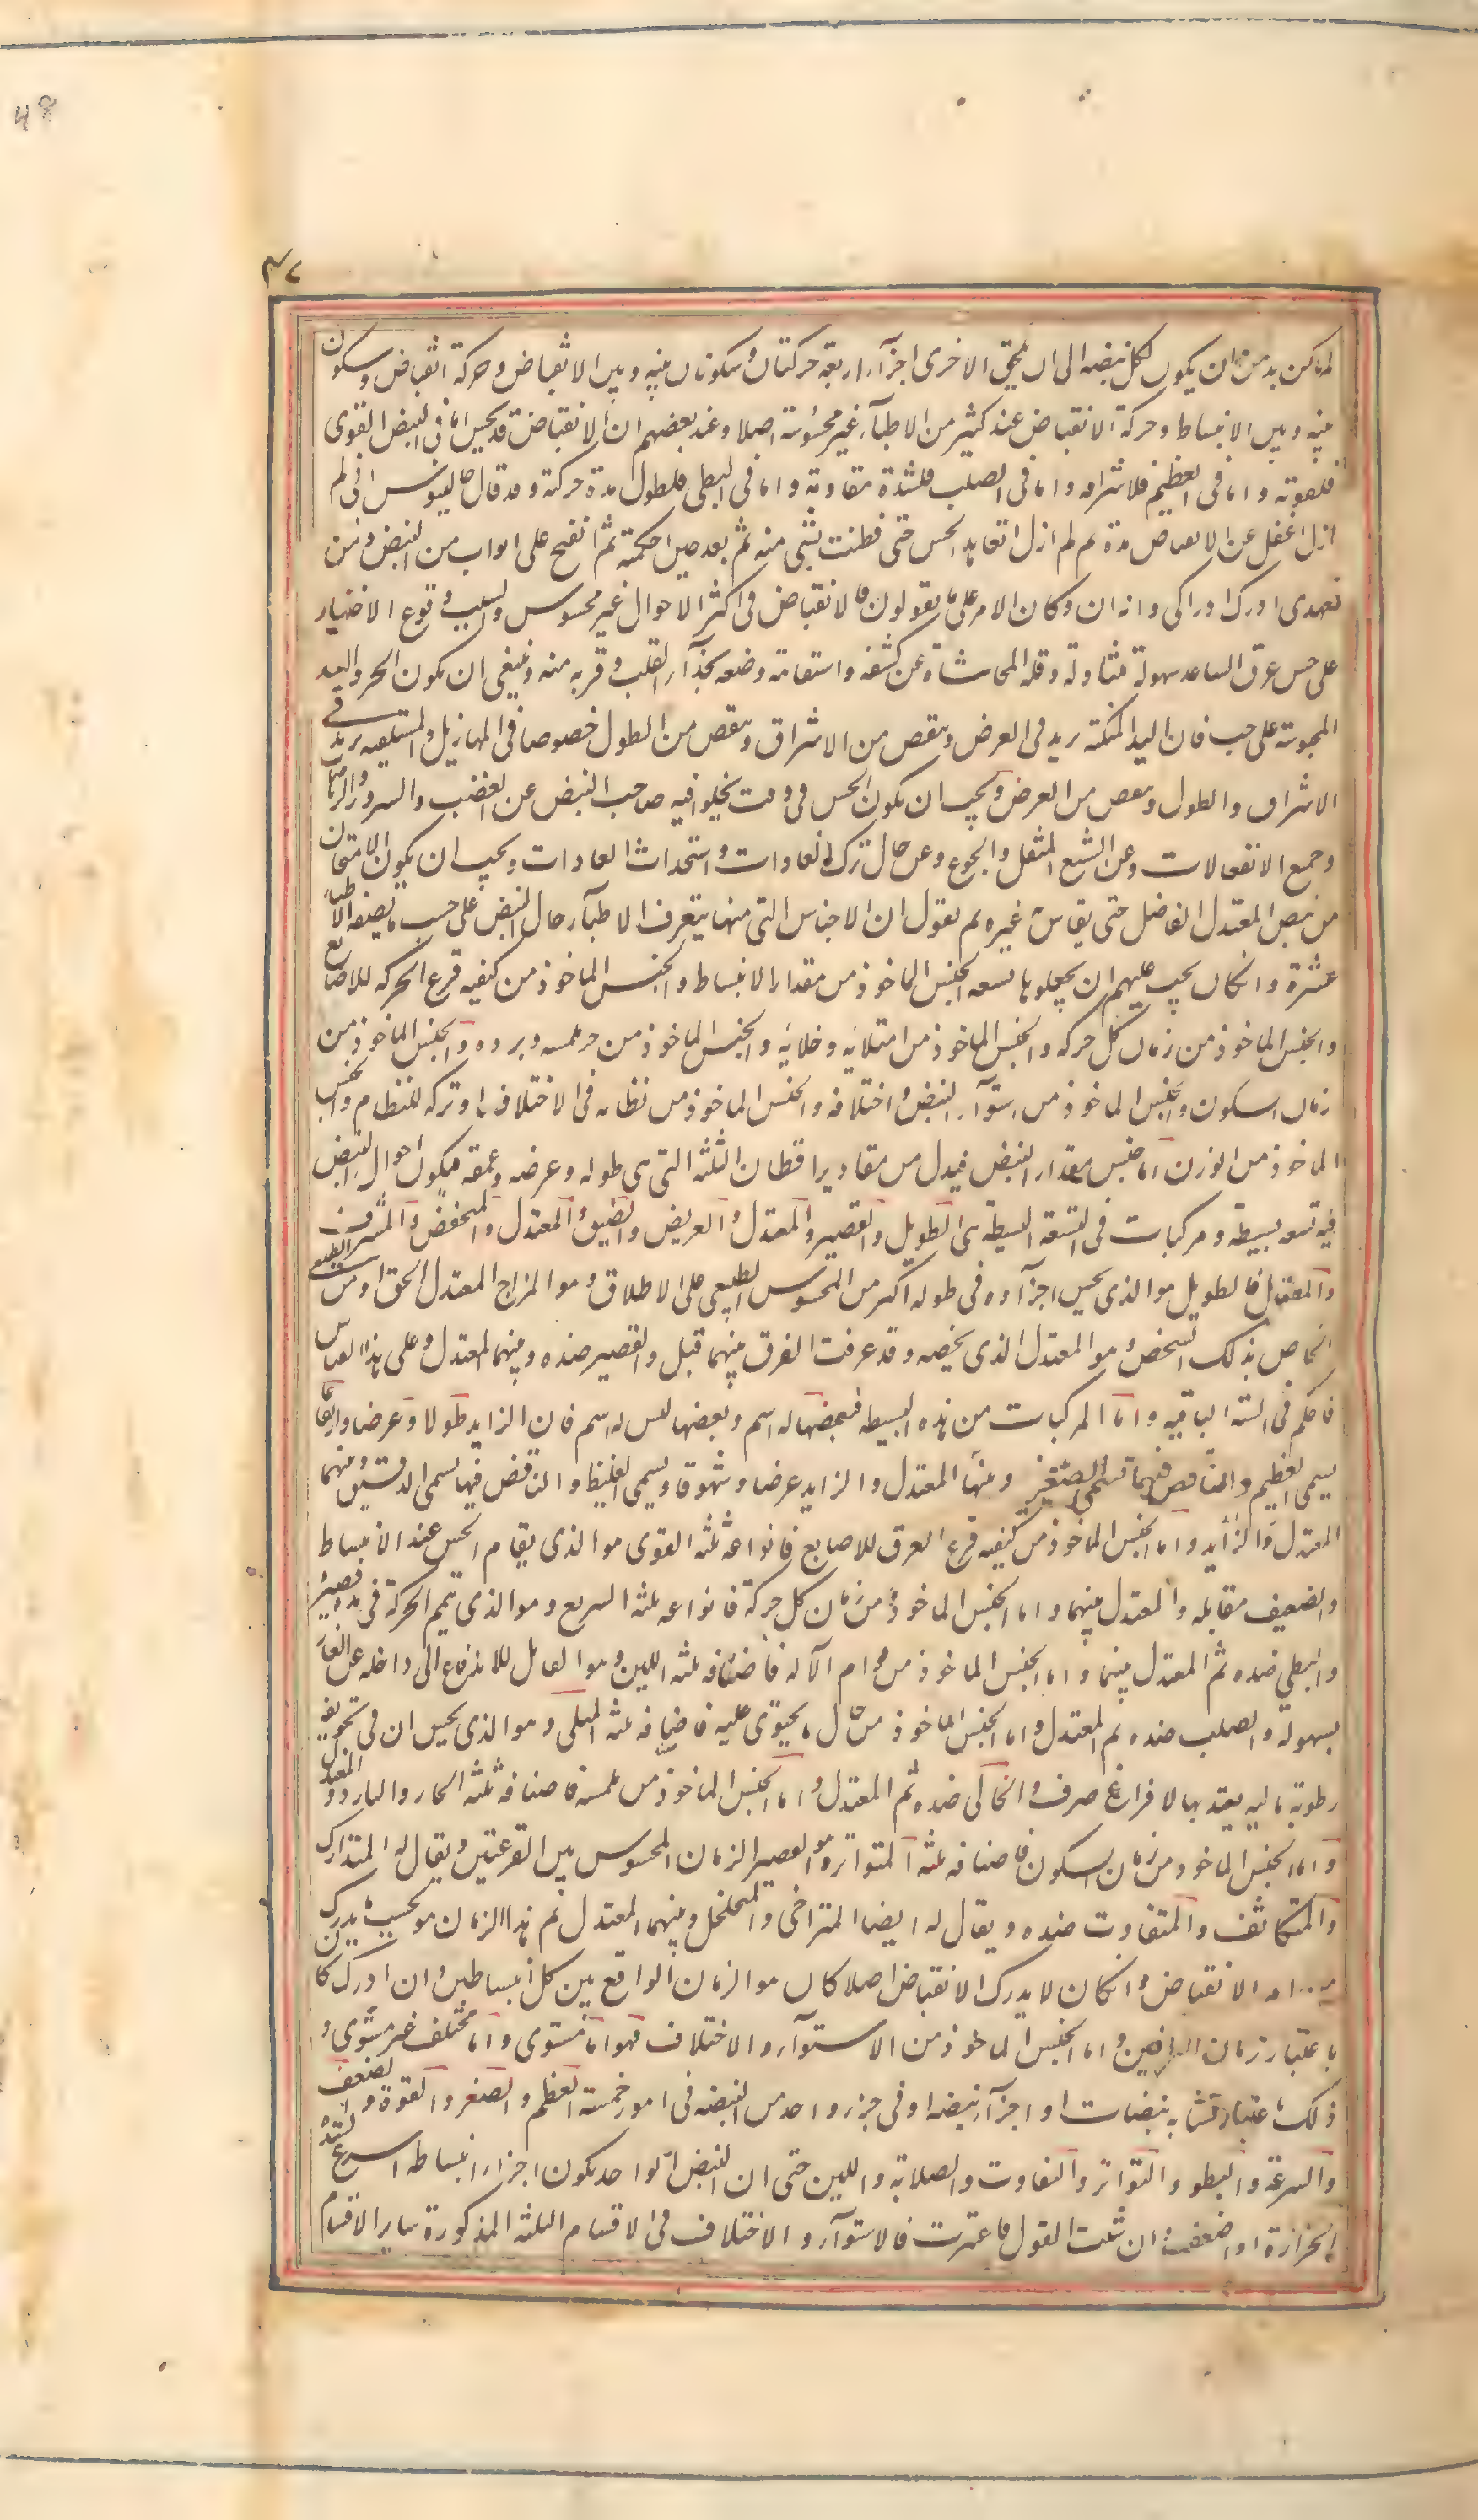 48
٤٧
لم يكن بد من ان يكون لكل نبضة الى ان يلحق الاخرى اجزآء اربعة حركتان وسكونان بينه وبين الانقباض وحركة انقباض وسكون
بينه وبين الانبساط وحركة الانقباض عند كثير من الاطبآء غير محسوسة اصلا وعند بعضهم ان الانقباض قد يحس اما فى النبض القوى
فلقوته واما فى العظيم فلاشرافه واما فى الصلب فلشدة مقاومته واما فى البطى فلطول مدة حركته وقد قال جالينوس انى لم
ازل اغفل عن الانقباض مدة ثم لم ازل اتعاهد الحس حتى فطنت بشى منه ثم بعد حين احكمته ثم انفتح على ابواب من النبض ومن
تعهدى ادرك ادراكى وانه ان وكان الامر على ما يقولون فالانقباض فى اكثر الاحوال غير محسوس والسبب فى وقوع الاختيار
على جس عرق الساعد سهولة متناوله وقلة المحاشاة عن كشفه واستقامة وضعه بحذآء القلب وقربه منه وينبغى ان يكون الجس واليد
المجوسة على جنب فان اليد المتكئة يزيد فى العرض وينقص من الاشراف وينقص من الطول خصوصا فى المهازيل والمستلقية يزيد فى
الاشراف والطول وينقص من العرض ويجب ان يكون الجس فى وقت يخلوا فيه صاحب النبض عن الغضب والسرور والرياضة
وجميع الانفعالات وعن الشبع المثقل والجوع وعن حال ترك العادات واستحداث العادات ويجب ان يكون الامتحان
من نبض المعتدل الفاضل حتى يقاس غيره ثم نقول ان الاجناس التى منها يتعرف الاطبآء حال النبض على حسب ما يصفه الاطباء
عشرة وان كان يجب عليهم ان يجعلوها تسعة الجنس الماخوذ من مقدار الانبساط والجنس الماخوذ من كيفية قرع الحركة للاصابع
والجنس الماخوذ من زمان كل حركة والجنس الماخوذ من امتلائه وخلائه والجنس الماخوذ من حر ملمسه وبرده والجنس الماخوذ من
زمان السكون والجنس الماخوذ من استوآء النبض واختلافه والجنس الماخوذ من نظامه فى الاختلاف او تركه للنظام والجنس
الماخوذ من الوزن اما جنس مقدار النبض فيدل من مقادير اقطاره الثلثة التى هى طوله وعرضه وعمقه فيكون احوال النبض
فيه تسعة بسيطة ومركبات فى التسعة البسيطة هى الطويل والقصير والمعتدل والعريض والضيق والمعتدل والمنخفض والمشرف
والمعتدل فالطويل هو الذى يحس اجزآوه فى طوله اكثر من المحسوس الطبيعى على الاطلاق وهو المزاج المعتدل الحق او من الطبيعى
الخاص بذلك الشخص وهو المعتدل الذى يخصه وقد عرفت الفرق بينهما قبل والقصير ضده وبينهما المعتدل وعلى هذا القياس
فاحكم فى الستة الباقية واما المركبات من هذه البسيطة فبعضها له اسم وبعضها ليس له اسم فان الزايد طولا وعرضا وارتفاعا
يسمى العظيم والناقص فيهما تسمى الصغير وبينهما المعتدل والزايد عرضا وشهوقا ويسمى الغليظ والناقص فيها يسمى الدقيق وبينهما
المعتدل والزايد واما الجنس الماخوذ من كيفية قرع العرق للاصابع فانواعه ثلثة القوى هو الذى يقاوم الجس عند الانبساط
والضعيف مقابله والمعتدل بينهما واما الجنس الماخوذ من زمان كل حركة فانواعه ثلثة السريع وهو الذى يتمم الحركة فى مدة قصيرة
والبطى ضده ثم المعتدل بينهما واما الجنس الماخوذ من قوام الآلة فاصنافه ثلثة اللين وهو القابل للاندفاع الى داخله عن الغامز
بسهولة والصلب ضده ثم المعتدل واما الجنس الماخوذ من حال ما يحتوى عليه فاصنافه ثلثة الممتلى وهو الذى يحس ان فى تجويفه
رطوبة مالية يعتد بها لا فراغ صرف والخالى ضده ثم المعتدل واما الجنس الماخوذ من ملمسه فاصنافه ثلثة الحار والبارد والمعتدل
واما الجنس الماخوذ من زمان السكون فاصنافه ثلثة المتواتر وهو القصير الزمان المحسوس بين القرعتين ويقال له المتدارك
والمتكاثف والمتفاوت ضده ويقال له ايضا المتراخى والمتخلخل وبينهما المعتدل ثم هذا الزمان هو بحسب ما يدرك
الانقباض وان كان لا يدرك الانقباض اصلا كان هو الزمان الواقع بين كل انبساطين وان ادرك كان
باعتبار زمان الطرفين واما الجنس الماخوذ من الاستوآء والاختلاف فهو اما مستوى واما مختلف غير مستوى و
ذلك باعتبار تشابه نبضات او اجزآء نبضة او فى جزء واحد من النبضة فى امور خمسة العظم والصغر والقوة والضعف
والسرعة والبطو والتواتر والتفاوت والصلابة واللين حتى ان النبض الواحد يكون اجزاء انبساطه اسرع لشدة
الحرارة او اضعف ان شئت القول فاعتبرت فالاستوآء والاختلاف فى الاقسام الثلثة المذكورة ساير الاقسام